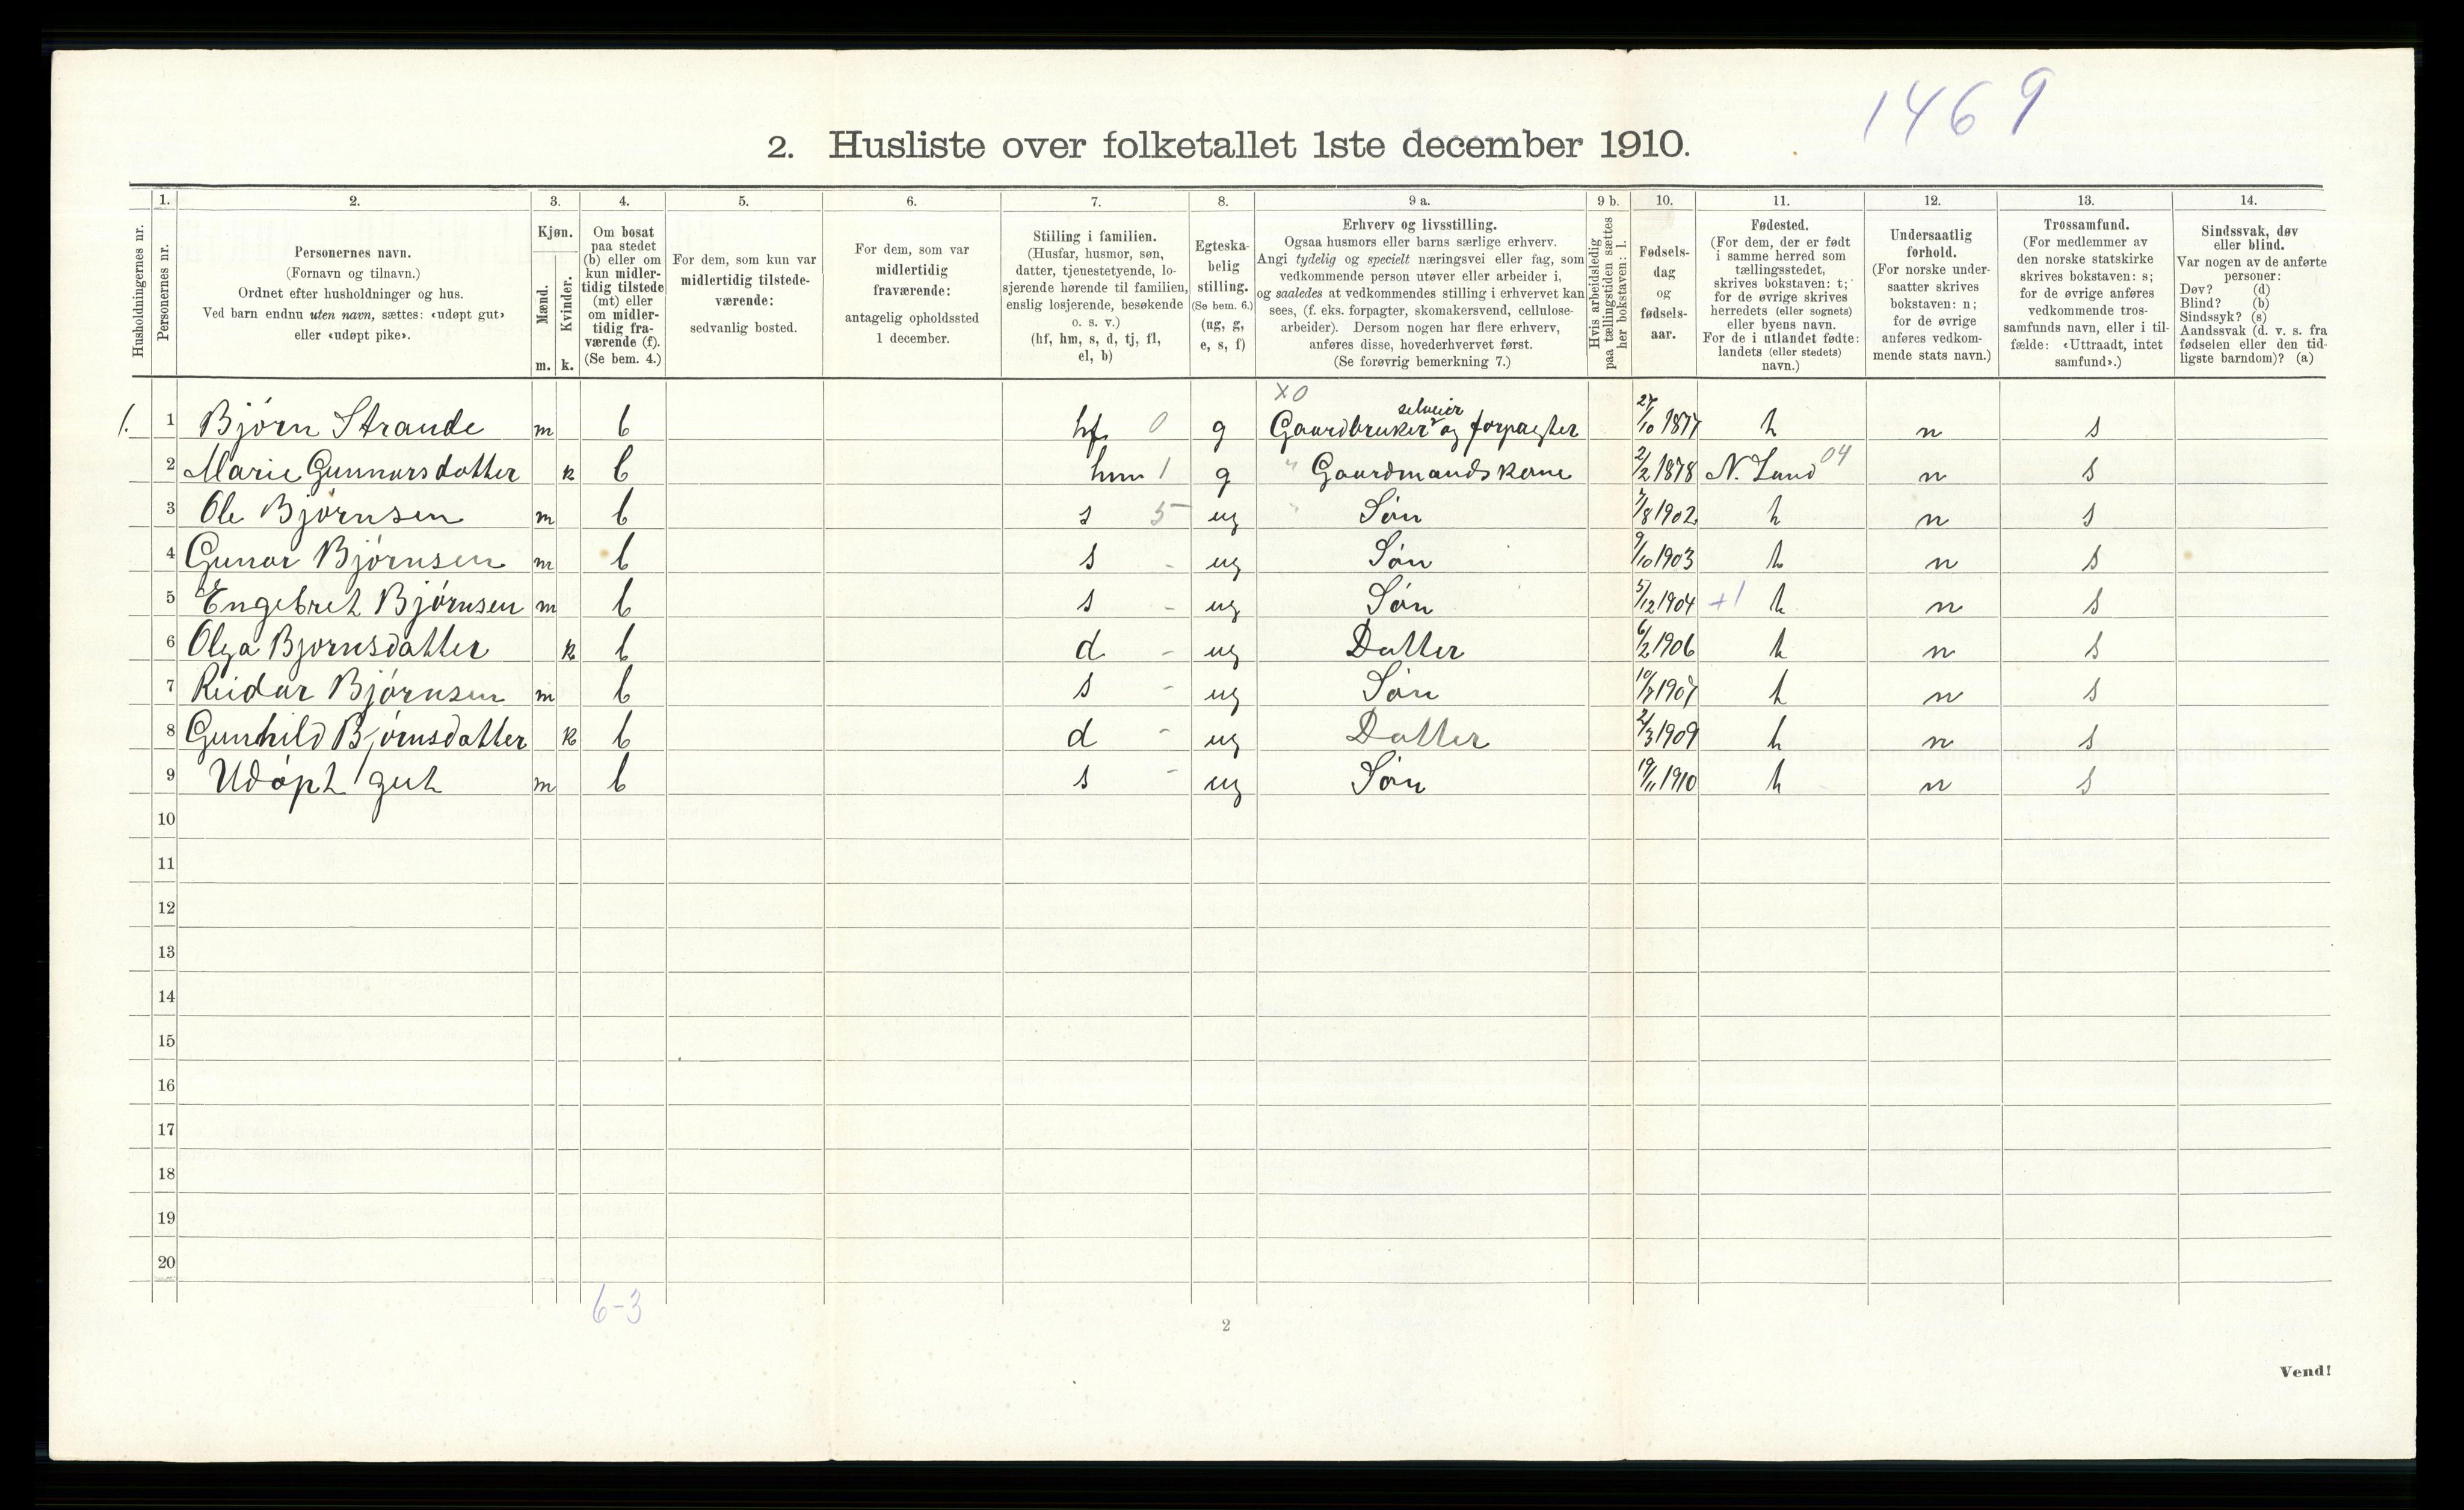 1469
2. Husliste over folketallet 1ste december 1910.
Husholdningernes nr.
1. Personernes nr.
2. Personernes navn. (Fornavn og tilnavn.) Ordnet efter husholdninger og hus. Ved barn endnu uten navn, sættes: «udøpt gut» eller «udøpt pike».
3. Kjøn. Mænd. m. Kvinder. k.
4. Om bosat paa stedet (b) eller om kun midlertidig tilstede (mt) eller om midlertidig fraværende (f). (Se bem. 4.)
5. For dem, som kun var midlertidig tilstedeværende: sedvanlig bosted.
6. For dem, som var midlertidig fraværende: antagelig opholdssted 1 december.
7. Stilling i familien. (Husfar, husmor, søn, datter, tjenestetyende, losjerende hørende til familien, enslig losjerende, besøkende o. s. v.) (hf, hm, s, d, tj, fl, el, b)
8. Egteskabelig stilling. (Se bem. 6.) (ug, g, e, s, f)
9 a. Erhverv og livsstilling. Ogsaa husmors eller barns særlige erhverv. Angi tydelig og specielt næringsvei eller fag, som vedkommende person utøver eller arbeider i, og saaledes at vedkommendes stilling i erhvervet kan sees, (f. eks. forpagter, skomakersvend, cellulosearbeider). Dersom nogen har flere erhverv, anføres disse, hovederhvervet først. (Se forøvrig bemerkning 7.)
9 b. Hvis arbeidsledig paa tællingstiden sættes her bokstaven: l.
10. Fødselsdag og fødselsaar.
11. Fødested. (For dem, der er født i samme herred som tællingsstedet, skrives bokstaven: t; for de øvrige skrives herredets (eller sognets) eller byens navn. For de i utlandet fødte: landets (eller stedets) navn.)
12. Undersaatlig forhold. (For norske undersaatter skrives bokstaven: n; for de øvrige anføres vedkommende stats navn.)
13. Trossamfund. (For medlemmer av den norske statskirke skrives bokstaven: s; for de øvrige anføres vedkommende trossamfunds navn, eller i tilfælde: «Uttraadt, intet samfund».)
14. Sindssvak, døv eller blind. Var nogen av de anførte personer: Døv? (d) Blind? (b) Sindssyk? (s) Aandssvak (d. v. s. fra fødselen eller den tidligste barndom)? (a)
X0
1. 1 Bjørn Strande m b hf 0 g Gaardbruker selveier og forpagter 27/10 1877 t n s
2 Marie Gunnarsdatter k b hm 1 g " Gaardmandskone 2/2 1878 N. Land 04 n s
3 Ole Bjørnsen m b s 5 ug " Søn 7/8 1902 t n s
4 Gunar Bjørnsen m b s - ug Søn 9/10 1903 t n s
5 Engebret Bjørnsen m b s - ug Søn 5/12 1904 +1 t n s
6 Olga Bjørnsdatter k b d - ug Datter 6/2 1906 t n s
7 Reidar Bjørnsen m b s - ug Søn 10/7 1907 t n s
8 Gunhild Bjørnsdatter k b d - ug Datter 2/3 1909 t n s
9 Udøpt gut m b s - ug Søn 19/11 1910 t n s
10
11
12
13
14
15
16
17
18
19
20
6-3
2
Vend!